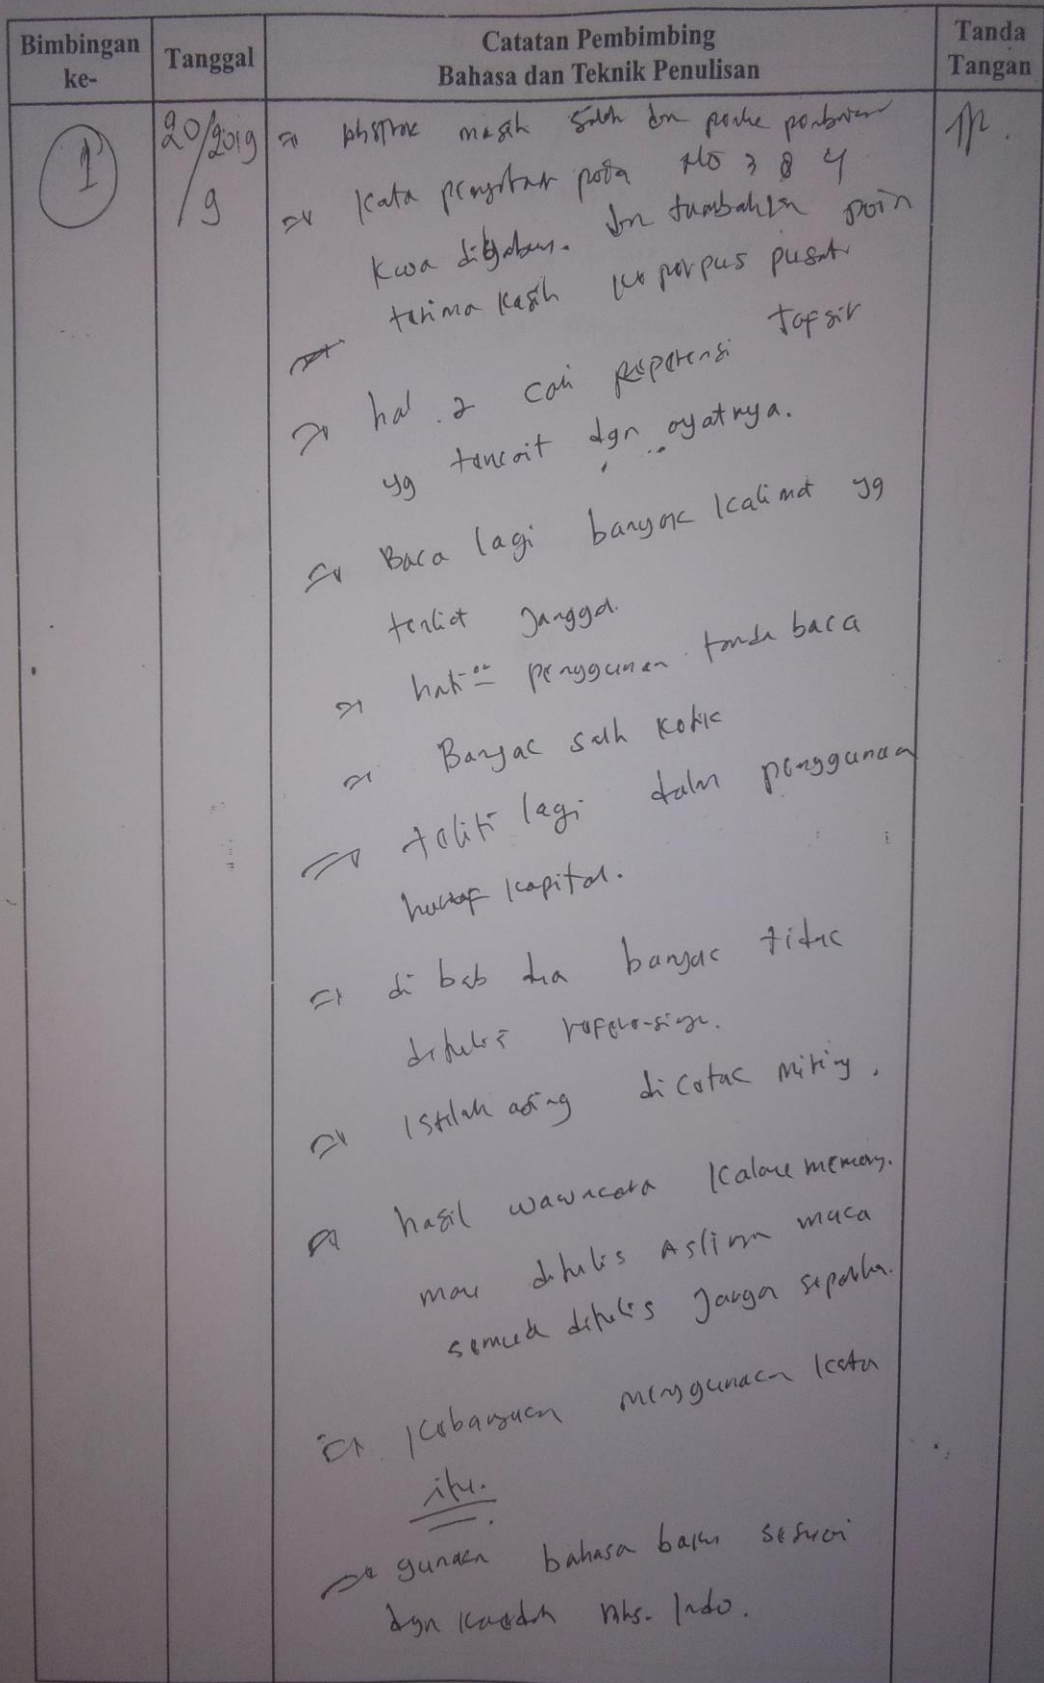 Bimbingan ke-
Tanggal
Catatan Pembimbing
Bahasa dan Teknik Penulisan
Tanda Tangan
1
20/2019
/9
masih salah dn
Kata pengantar pada No 3 & 4
dn tambahkan poin
terima kasih ke perpus pusat
hal. 2 cari reperensi tafsir
yg terkait dgn ayatnya.
Baca lagi banyak kalimat yg
terliat janggal.
hati-2 penggunaan tanda baca
Banyak salh ketik
teliti lagi dalm penggunaan
huruf kapital.
di bab dua banyak tidak
ditulis referensinya.
Istilah asing di cetak miring.
hasil wawncara kalau memang.
mau ditulis Aslinya maka
semua ditulis Jangan
kebanyakan menggunakan kata
itu.
gunakan bahasa baku sesuai
dgn kaedah Bhs. Indo.